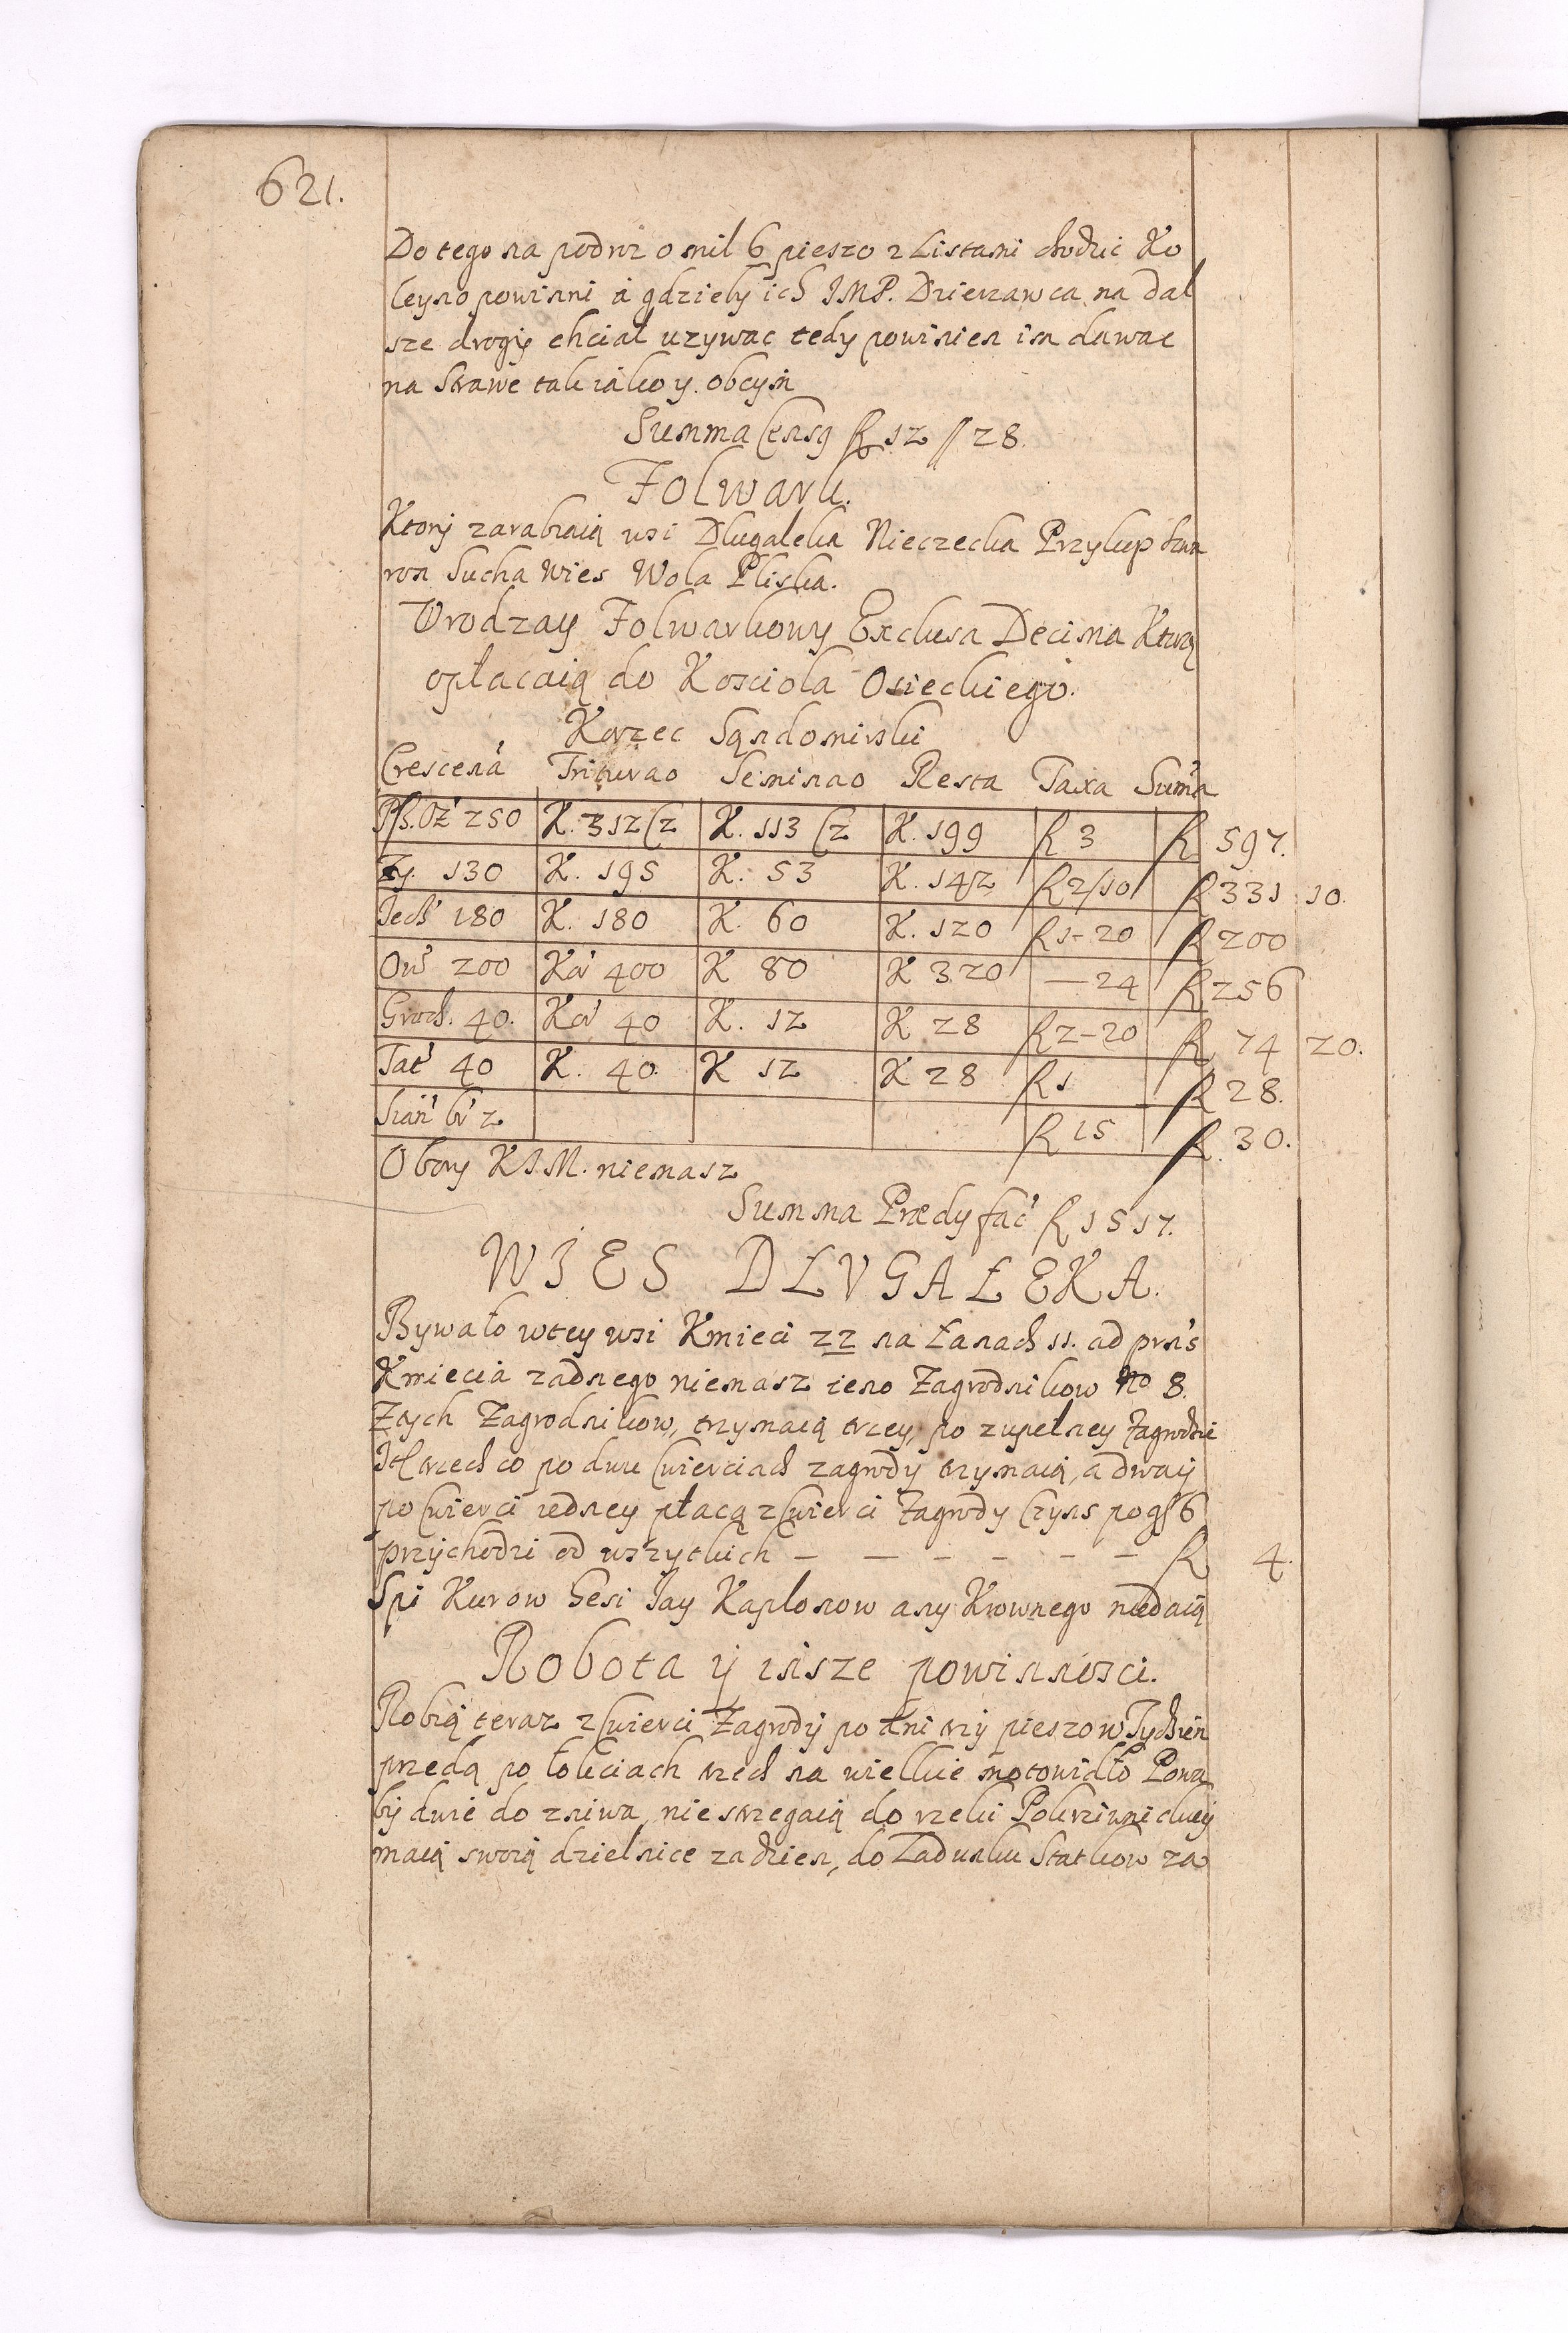 621.
Do tego na podroz o mil 6 pieszo z Listami chodzic Ko
leyno powinni a gdzieby ich JMP. Dzierzawca na dal
sze drogy chciał uzywac tedy powinien im dawac
na Strawe tak iako y. obcym
Summa Censq fl 12 // 28.
Folwark.
Ktory zarabiaią wsi Dlugaleka Nieczecka Przykup
Sucha Wies Wola Pliska.
Vrodzay Folwarkowy Exclusa Decima Ktorą
opłacaią do Kosciola Osieckiego.
Korzec Sąndomirski
Crescena Triturao Seminao Resta Taxa Suma
Ps. Oz 250 K. 312 Cz K. 113 Cz K. 199 fl 3 fl 597.
Zy. 130 K. 195 K. 53 K. 142 fl 2/10 fl 331 10.
Jech 180 K. 180 K. 60 K. 120 fl 1-20 fl 200
Ow 200 Ko 400 K 80 K 320 — 24 fl 256
Groch. 40. Ko 40 K. 12 K 28 fl 2-20 fl 74 20.
Tat 40 K. 40. K 12 K 28 fl 1 fl 28.
Sian br 2 fl 15 fl 30.
Obory KJM. niemasz
Summa Prædy fac fl 1517.
WIES DŁVGAŁEKA.
Bywało wtey wsi Kmieci 22 na Łanach 11. ad prns
Kmiecia zadnego niemasz ieno Zagrodnikow No 8.
Ztych Zagrodnikow, trzymaią trzey, po zupełney Zagrodzie
trzech co po dwu Cwierciach zagrody trzymaią, a dwaij
po Cwierci iedney płacą z Cwierci Zagrody Czyns po gs 6
przychodzi od wszytkich — — — — — — fl 4.
Spi Kurow Gesi Jay Kaplonow any Krownego niedaią
Robota ij insze powinnosci.
Robią teraz z Cwierci Zagrody po dni trzy pieszo w Tydzien
przedą po łokciach trzech na wielkie motowidło Powa
by dwie do zniwa, nie strzegaią do rzeki Pokrziwnickiey
maią swoią dzielnice za dzien, do Ładunku Statkow za